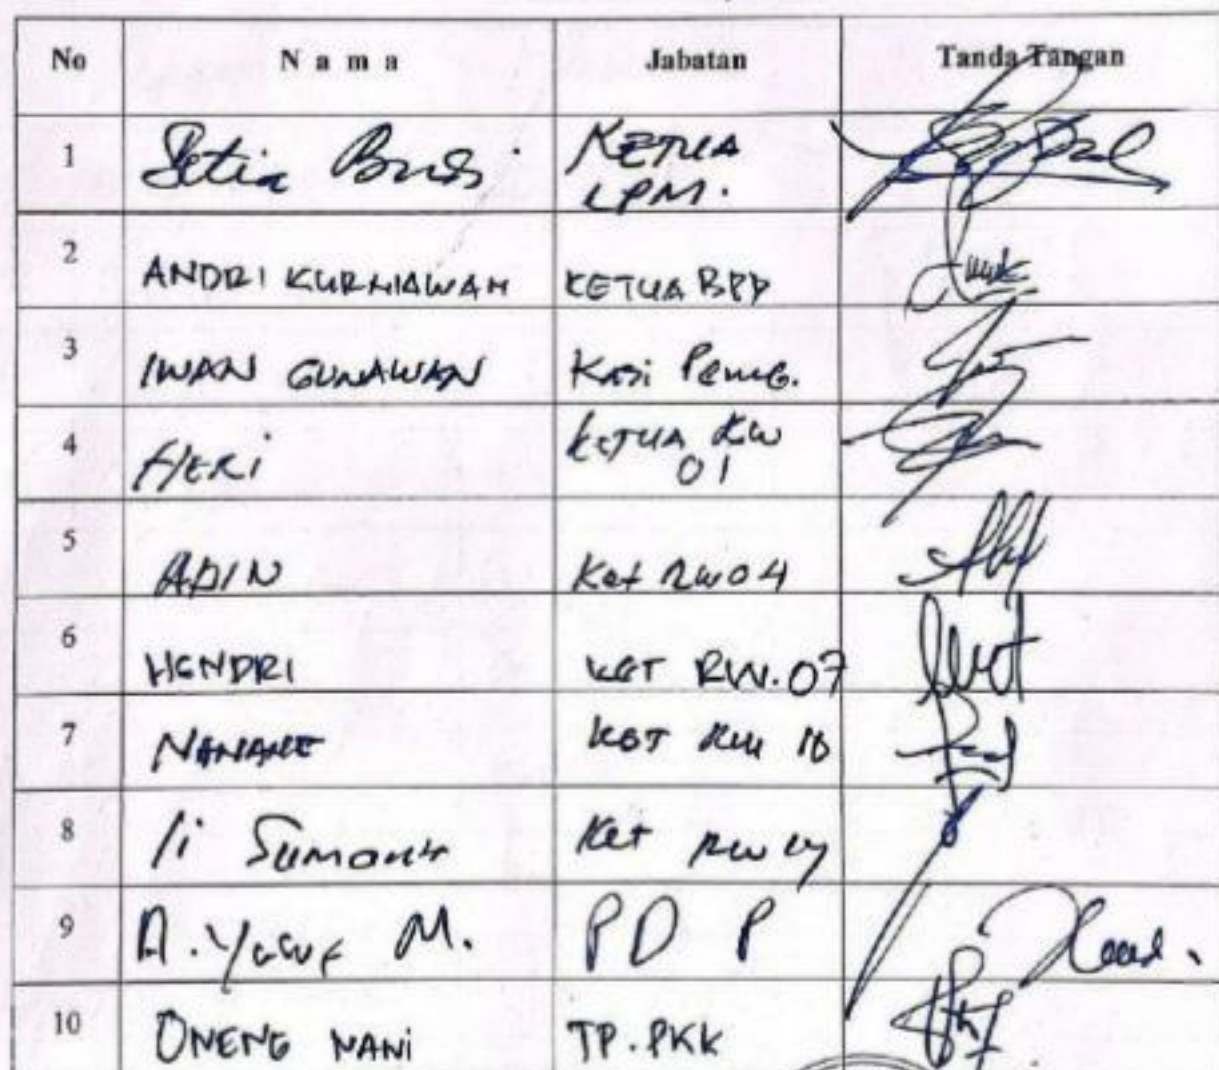 No N a m a Jabatan Tanda Tangan
1 Setia Budi KETUA
LPM.
2 ANDRI KURNIAWAN KETUA BPD
3 IWAN GUNAWAN Kasi Pemb.
4 HERI KETUA RW
01
5 ADIN Ket RW 04
6 HENDRI KET RW. 07
7 KET RW 10
8 Ii Ket RW
9 A. Yusuf M. P D P
10 ONENG NANI TP. PKK